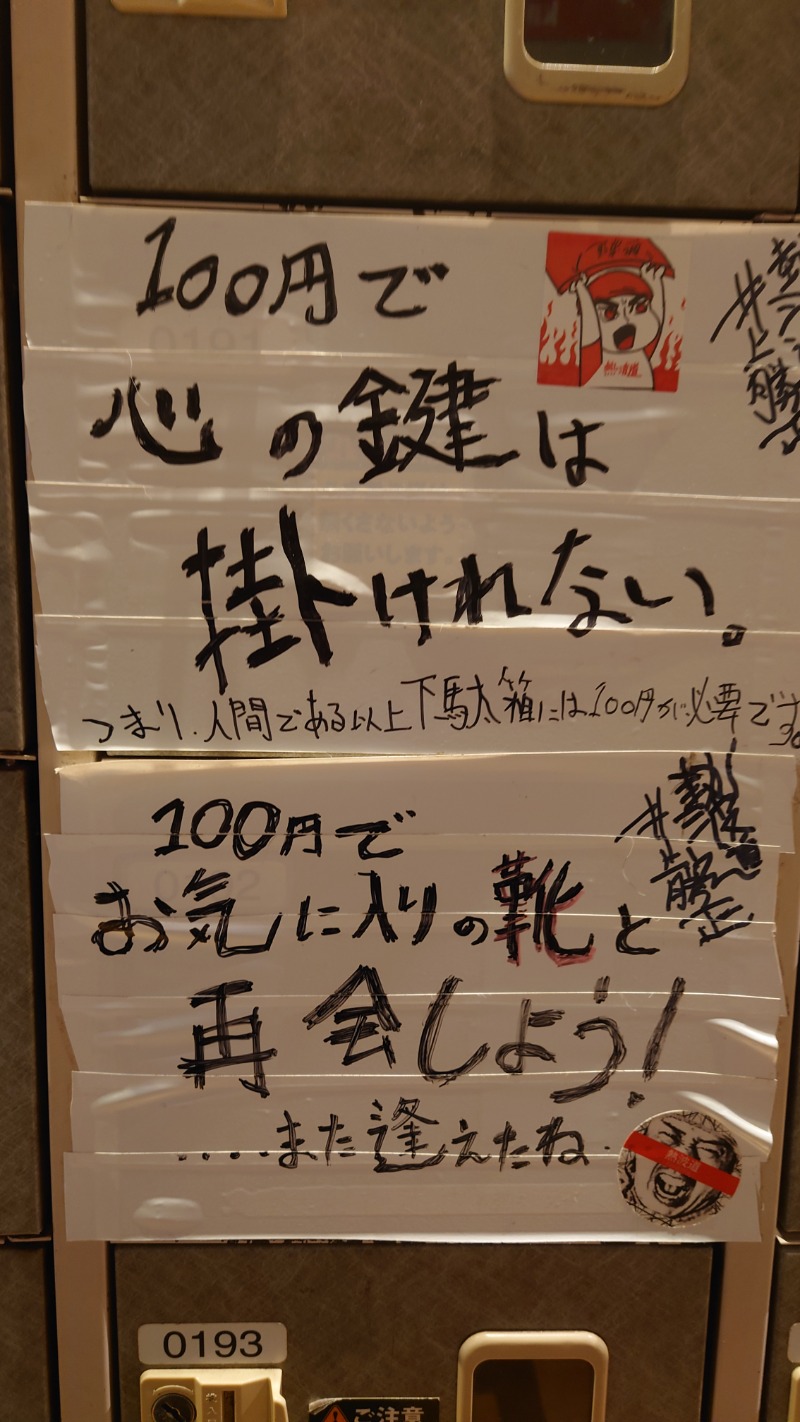 100円で
心の鍵は
掛けれない。
つまり、人間である以上下駄箱には100円が必要です。
100円で
お気に入りの靴と
再会しよう!
....また逢えたね.
熱波道
0193
ご注意